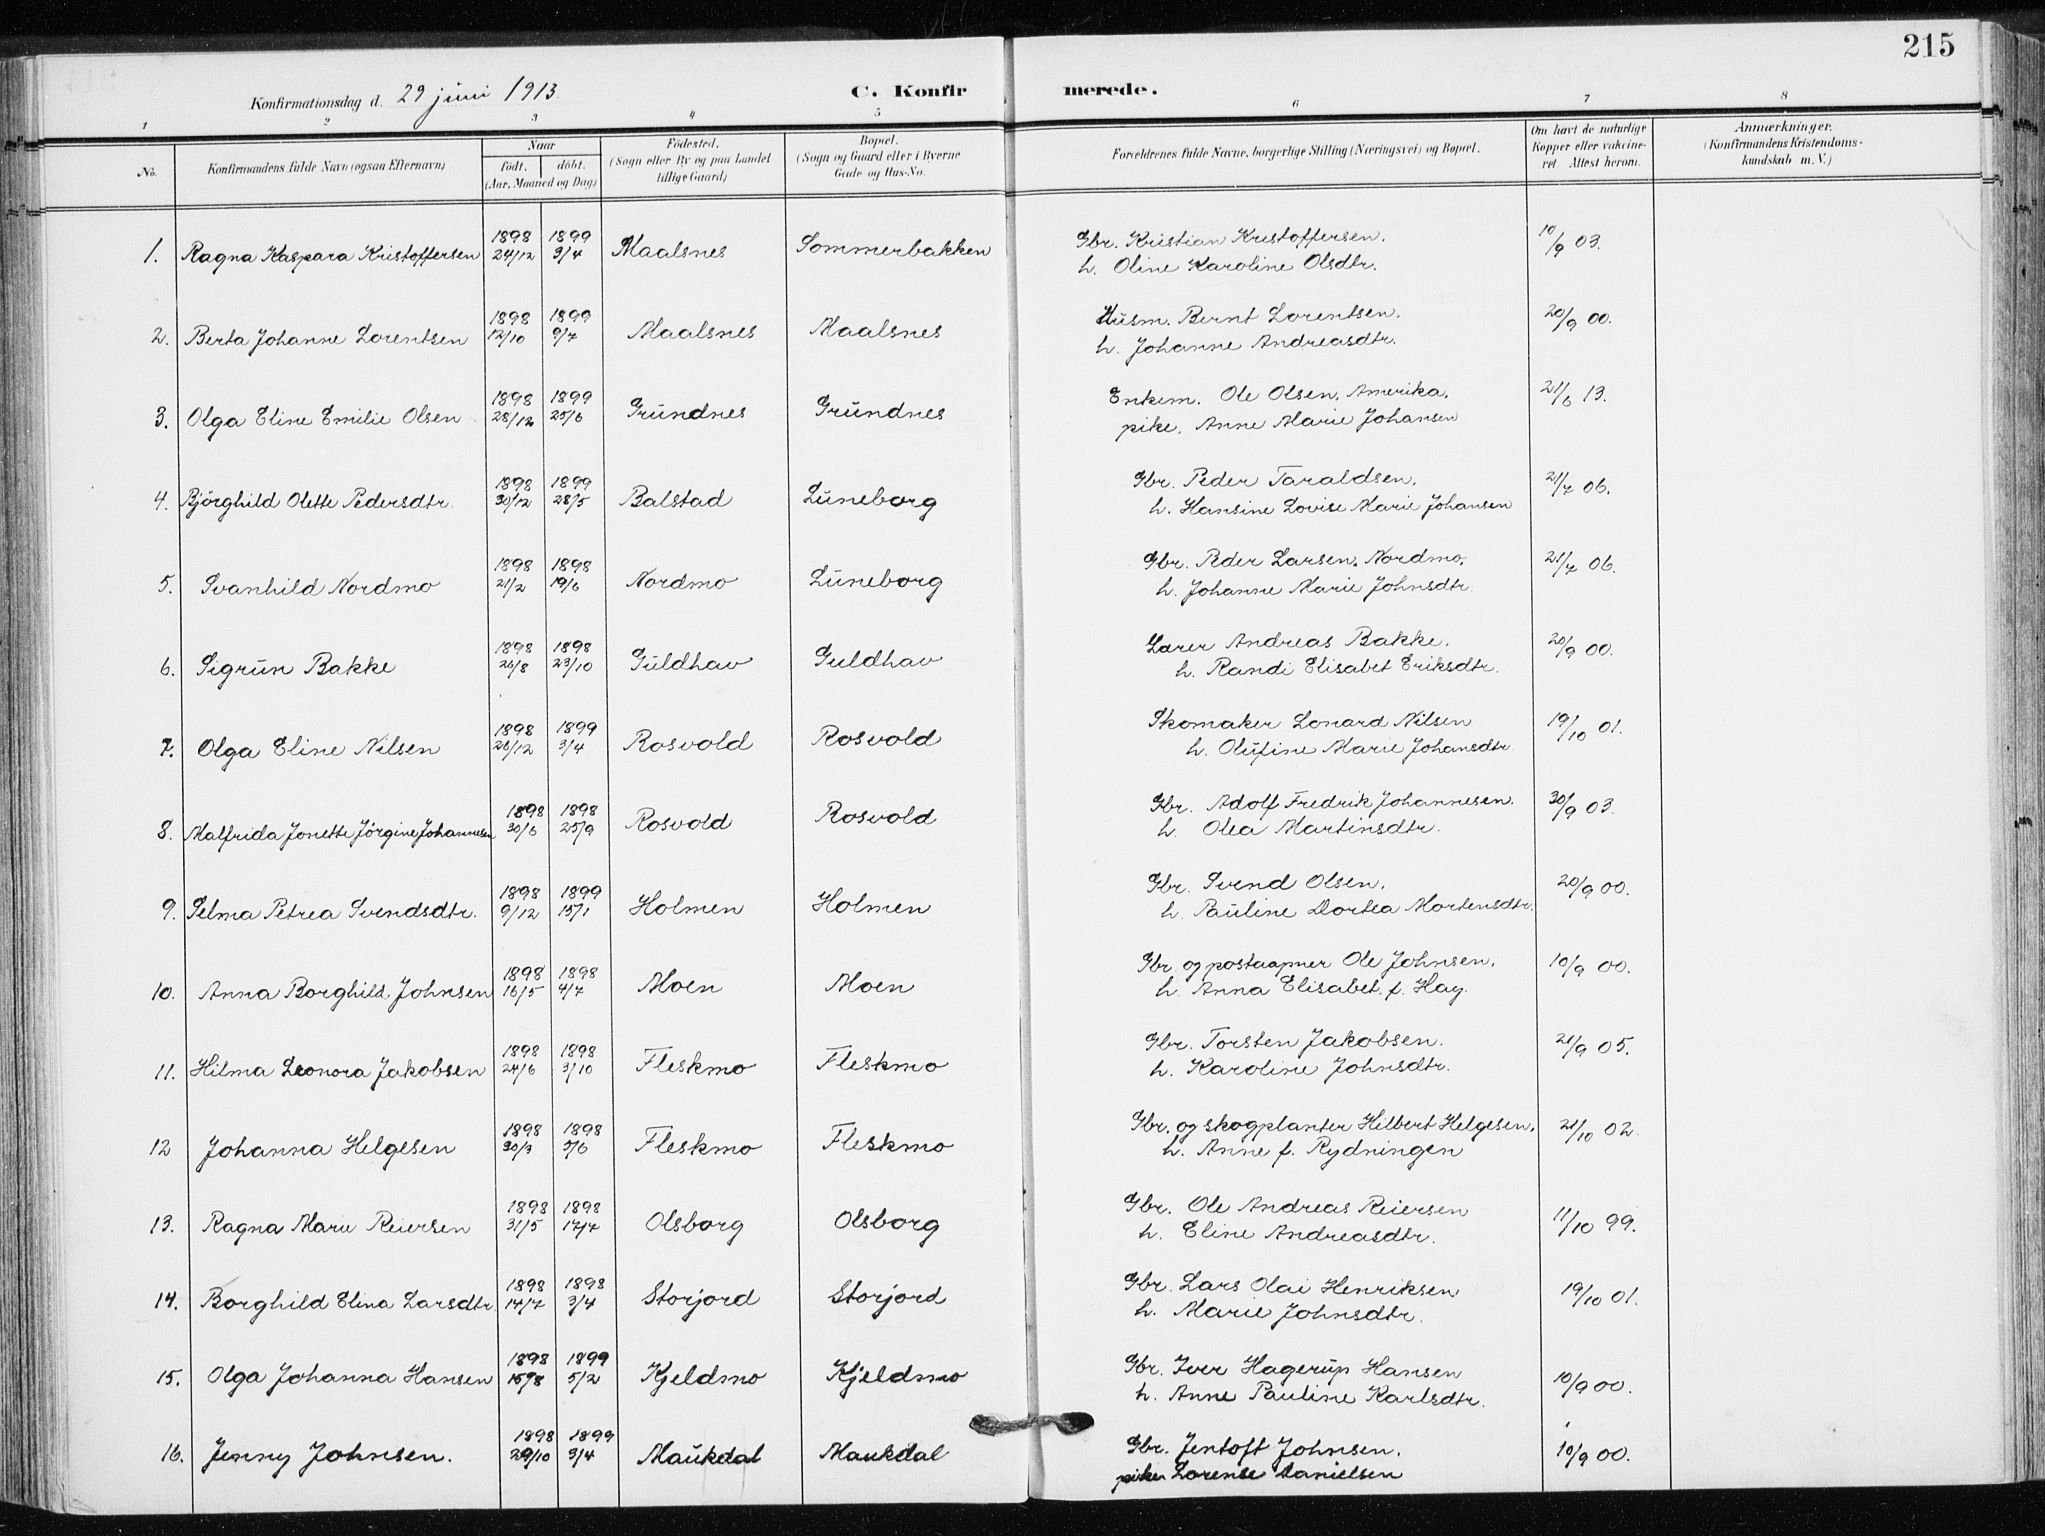 215
Konfirmationsdag d. 29 juni 1913
C. Konfirmerede.
1 2 3 4 5 6 7 8
No. Konfirmandens fulde Navn (ogsaa Efternavn) Naar født. døbt. (Aar, Maaned og Dag) Fødested. (Sogn eller By og paa Landet tillige Gaard) Bopæl. (Sogn og Gaard eller i Byerne Gade og Hus-No. Forældrenes fulde Navne, borgerlige Stilling (Næringsvei) og Bopæl. Om havt de naturlige Kopper eller vakcineret Attest herom. Anmærkninger. (Konfirmandens Kristendomskundskab m. V.)
1. Ragna Kaspara Kristoffersen 1898 24/12 1899 3/4 Maalsnes Sommerbakken Gbr. Kristian Kristoffersen. 10/9 03.
h. Oline Karoline Olsdtr.
2. Berta Johanne Lorentsen 1898 12/10 1899 9/7 Maalsnes Maalsnes Husm. Bernt Lorentsen. 20/9 00.
h. Johanne Andreasdtr.
3. Olga Eline Emilie Olsen 1898 28/12 1899 25/6 Grundnes Grundnes Enkem. Ole Olsen, Amerika. 21/6 13.
pike, Anne Marie Johansen
4. Bjørghild Olette Pedersdtr. 1898 30/12 1899 28/5 Balstad Luneborg Gbr. Peder Taraldsen. 21/7 06.
h. Hansine Lovise Marie Johansen
5. Svanhild Nordmo 1898 21/2 1898 19/6 Nordmo Luneborg Gbr. Peder Larsen, Nordmo. 21/7 06.
h. Johanne Marie Johnsdtr.
6. Sigrun Bakke 1898 26/8 1898 23/10 Guldhav Guldhav Lærer Andreas Bakke. 20/9 00.
h. Randi Elisabet Eriksdtr.
7. Olga Eline Nilsen 1898 28/12 1899 3/4 Rosvold Rosvold Skomaker Lonard Nilsen 19/10 01.
h. Olufine Marie Johansdtr.
8. Malfrida Jonette Jörgine Johannesen 1898 30/6 1898 25/9 Rosvold Rosvold Gbr. Adolf Fredrik Johannesen. 30/9 03.
h. Olea Martinsdtr.
9. Selma Petrea Svendsdtr. 1898 9/12 1899 15/1 Holmen Holmen Gbr. Svend Olsen. 20/9 00.
h. Pauline Dortea Mortensdtr.
10. Anna Borghild Johnsen 1898 16/5 1898 4/7 Moen Moen Gbr. og postaapner Ole Johnsen. 10/9 00.
h. Anna Elisabet f. Hay.
11. Hilma Leonora Jakobsen 1898 24/6 1898 3/10 Fleskmo Fleskmo Gbr. Torsten Jakobsen. 21/9 05.
h. Karoline Johnsdtr.
12 Johanna Helgesen 1898 30/3 1898 5/6 Fleskmo Fleskmo Gbr. og skogplanter Hilbert Helgesen. 21/10 02.
h. Anne f. Rydningen
13. Ragna Marie Reiersen 1898 31/5 1898 17/7 Olsborg Olsborg Gbr. Ole Andreas Reiersen 11/10 99.
h. Eline Andreasdtr.
14. Borghild Elina Larsdtr. 1898 14/7 1898 3/4 Storjord Storjord Gbr. Lars Olai Henriksen 19/10 01.
h. Marie Johnsdtr.
15. Olga Johanna Hansen 1898 15/8 1899 5/2 Kjeldmo Kjeldmo Gbr. Iver Hagerup Hansen 10/9 00.
h. Anne Pauline Karlsdtr.
16. Jenny Johnsen. 1898 29/10 1899 3/4 Maukdal Maukdal Gbr. Jentoft Johnsen. 10/9 00.
piken Lorense Danielsen